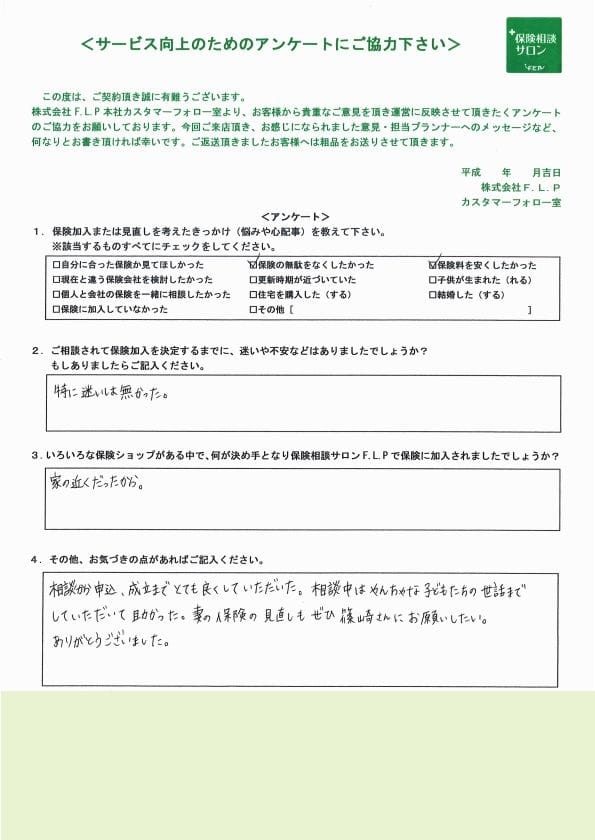 ＜サービス向上のためのアンケートにご協力下さい＞
保険相談
サロン
F.L.P
この度は、ご契約頂き誠に有難うございます。
株式会社F.L.P本社カスタマーフォロー室より、お客様から貴重なご意見を頂き運営に反映させて頂きたくアンケート
のご協力をお願いしております。今回ご来店頂き、お感じになられました意見・担当プランナーへのメッセージなど、
何なりとお書き頂ければ幸いです。ご返送頂きましたお客様へは粗品をお送りさせて頂きます。
平成　　年　　月吉日
株式会社F.L.P
カスタマーフォロー室
＜アンケート＞
１．保険加入または見直しを考えたきっかけ（悩みや心配事）を教えて下さい。
※該当するものすべてにチェックをしてください。
□自分に合った保険か見てほしかった　☑保険の無駄をなくしたかった　☑保険料を安くしたかった
□現在と違う保険会社を検討したかった　□更新時期が近づいていた　□子供が生まれた（れる）
□個人と会社の保険を一緒に相談したかった　□住宅を購入した（する）　□結婚した（する）
□保険に加入していなかった　□その他［　　　］
２．ご相談されて保険加入を決定するまでに、迷いや不安などはありましたでしょうか？
もしありましたらご記入ください。
特に迷いは無かった。
３．いろいろな保険ショップがある中で、何が決め手となり保険相談サロンF.L.Pで保険に加入されましたでしょうか？
家の近くだったから。
４．その他、お気づきの点があればご記入ください。
相談から申込、成立までとても良くしていただいた。相談中はやんちゃな子どもたちの世話まで
していただいて助かった。妻の保険の見直しもぜひ篠崎さんにお願いしたい。
ありがとうございました。